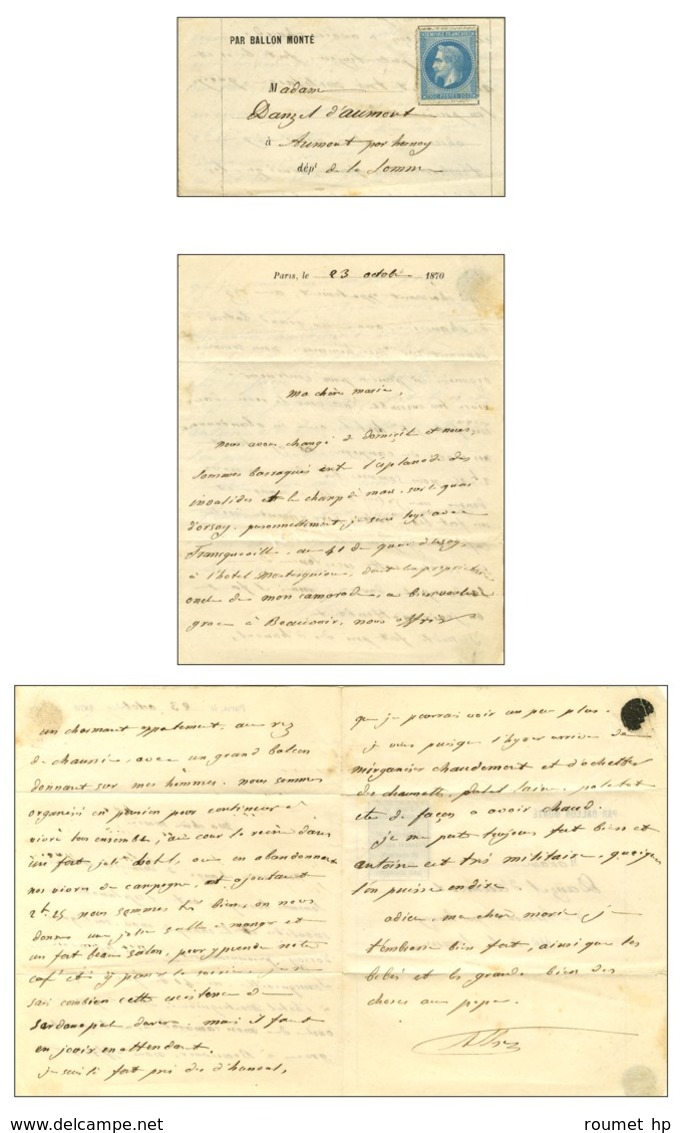 PAR BALLON MONTÉ
Madam
Danzel d'aumont
à Aumont par hornoy
dépt de la Somme
Paris, le 23 octobre 1870
Ma chère marie,
nous avons changé de domicile et nous
sommes baraqués ent l'esplanade des
invalides et le champ de mars sur le quai
d'orsay. personnellement, je suis logé avec
au 41 du quai d'orsay,
à l'hotel Montesquiou, dont le propriétaire
oncle de mon camarade, a bien voulu
grace à Beauvoir, nous offrir
un charmant appatement au rez
de chaussée avec un grand balcon
donnant sur mes hommes. nous sommes
organisés en pension pour continuer à
vivre tous ensemble, au cour la reine dans
un fort joli hotel, ou en abandonnant
nos vivres de campagne, et ajoutant
2f.25 nous sommes très bien, on nous
donne une jolie salle à manger et
un fort beau salon, pour y prendre notre
café et y passer la soirée. je ne
sais combien cette existence de
Sardanapal durera. mais il faut
en jouir en attendant.
je suis ici fort près des d'hancul,
que je pourrai voir un peu plus.
je vais puisque l'hyver arrive
m'organiser chaudement et d'acheter
des chaussettes, gilet laine, paletot
etc de façon a avoir chaud.
je me porte toujours fort bien et
antoine est très militaire, quoique
l'on puisse en dire
adieu, ma chère marie je
t'embrasse bien fort, ainsi que les
bébés et les grands bien des
choses au papa.
roumet hp